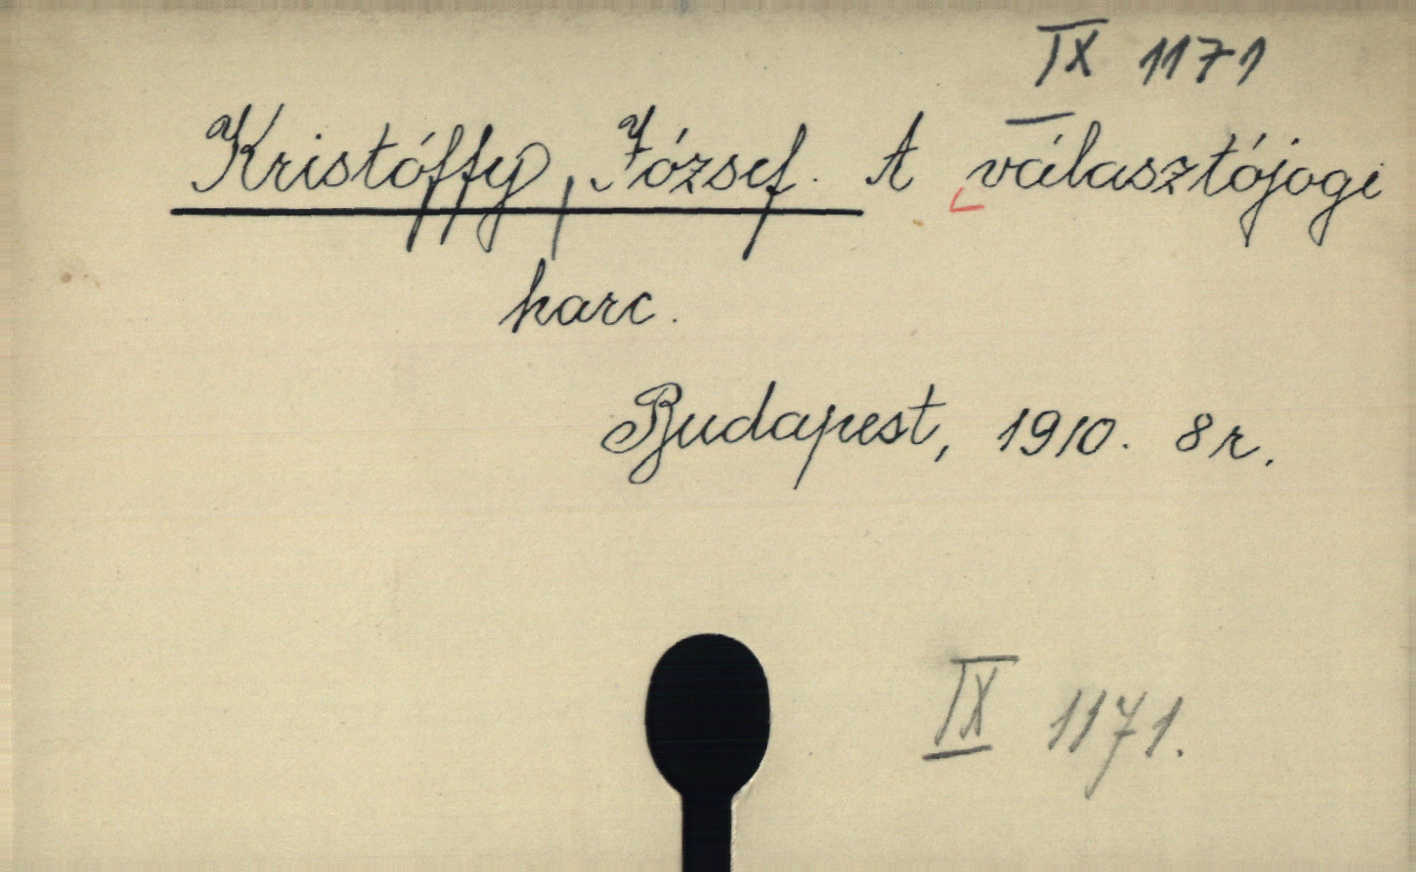 IX 1171
Kristóffy, József. A választójogi
harc.
Budapest, 1910. 8r.
IX 1171.